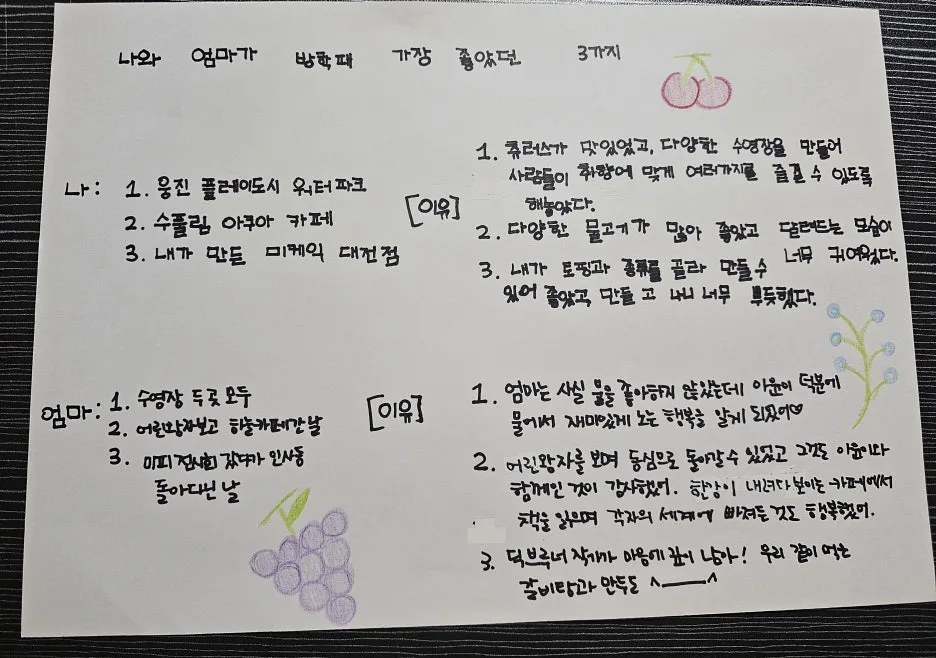 나와 엄마가 방학때 가장 좋았던 3가지
나: 1. 웅진 플레이도시 워터파크
2. 수플림 아쿠아 카페
3. 내가 만든 미케익 대전점
[이유]
1. 츄러스가 맛있었고, 다양한 수영장을 만들어
사람들이 취향에 맞게 여러가지를 즐길 수 있도록
해놓았다.
2. 다양한 물고기가 많아 좋았고 달려드는 모습이
너무 귀여웠다.
3. 내가 토핑과 종류를 골라 만들 수
있어 좋았고 만들고 나니 너무 뿌듯했다.
엄마: 1. 수영장 두 곳 모두
2. 어린왕자보고 하늘카페간 날
3. 미피 전시회 갔다가 인사동
돌아다닌 날
[이유]
1. 엄마는 사실 물을 좋아하지 않았는데 아윤이 덕분에
물에서 재미있게 노는 행복을 알게 되었어♡
2. 어린왕자를 보며 동심으로 돌아갈 수 있었고 그것도 아윤이와
함께인 것이 감사했어. 한강이 내려다 보이는 카페에서
책을 읽으며 각자의 세계에 빠져든 것도 행복했어.
3. 딕브루너 작가가 마음에 깊이 남아! 우리 같이 먹은
갈비탕과 만두도 ^___^